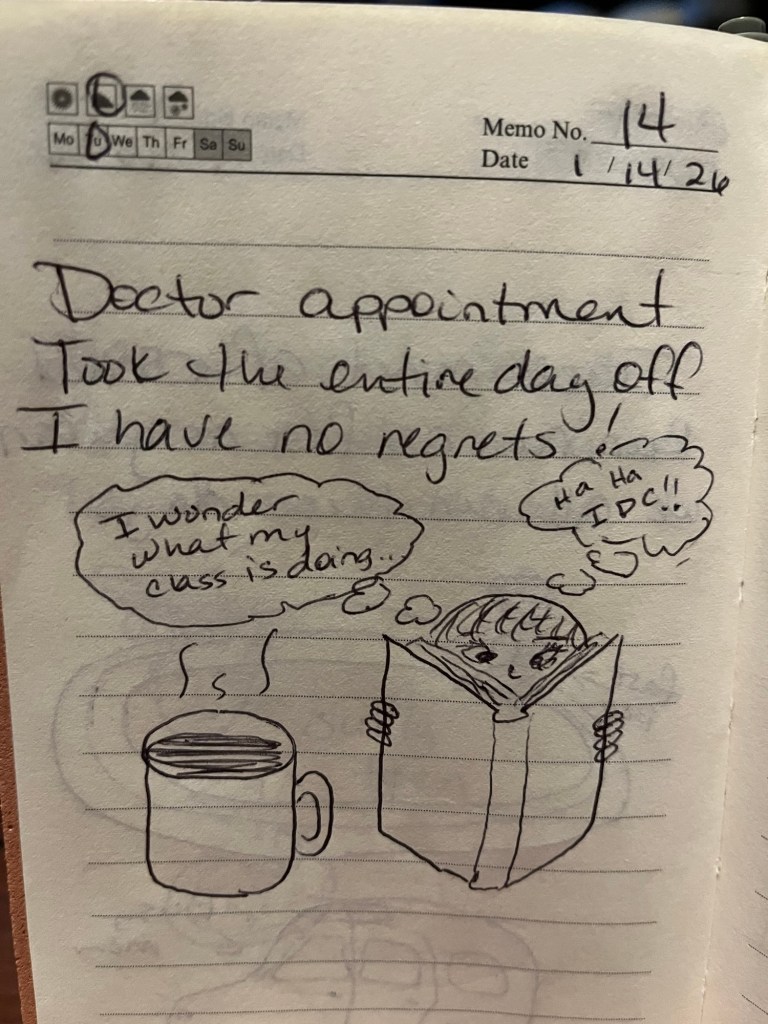 Mo Tu We Th Fr Sa Su
Memo No. 14
Date 1/14/26
Doctor appointment
Took the entire day off
I have no regrets!
I wonder
what my
class is doing...
Ha Ha
IDC!!